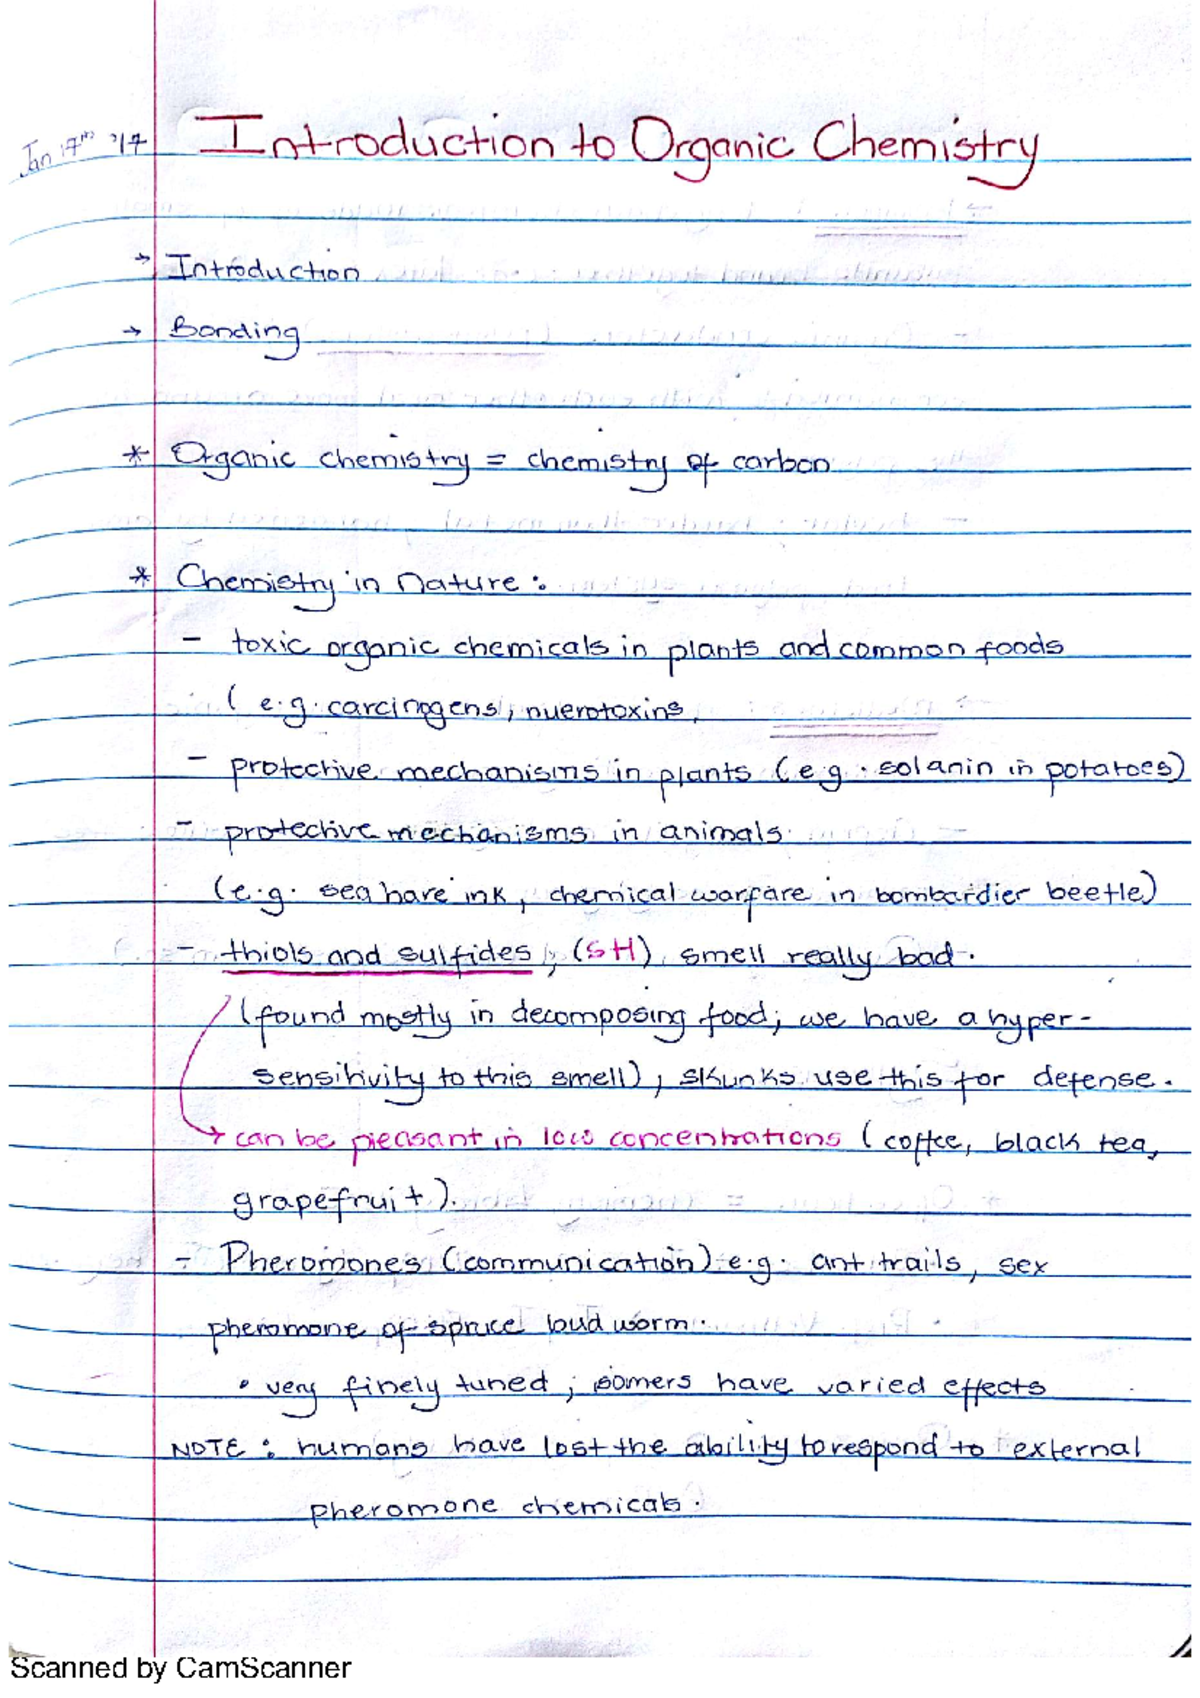 Jan 17th '17
Introduction to Organic Chemistry
→ Introduction
→ Bonding
* Organic chemistry = chemistry of carbon
* Chemistry in Nature :
- toxic organic chemicals in plants and common foods
( e.g. carcinogens, nuerotoxins,
- protective mechanisms in plants (e.g. solanin in potatoes)
- protective mechanisms in animals
(e.g. sea hare ink, chemical warfare in bombardier beetle)
- thiols and sulfides, (SH) smell really bad.
(found mostly in decomposing food; we have a hyper-
sensitivity to this smell), skunks use this for defense.
→ can be pleasant in low concentrations (coffee, black tea,
grapefruit).
- Pheromones (communication) e.g. ant trails, sex
pheromone of spruce budworm.
• very finely tuned ; isomers have varied effects
NOTE : humans have lost the ability to respond to external
pheromone chemicals.
Scanned by CamScanner